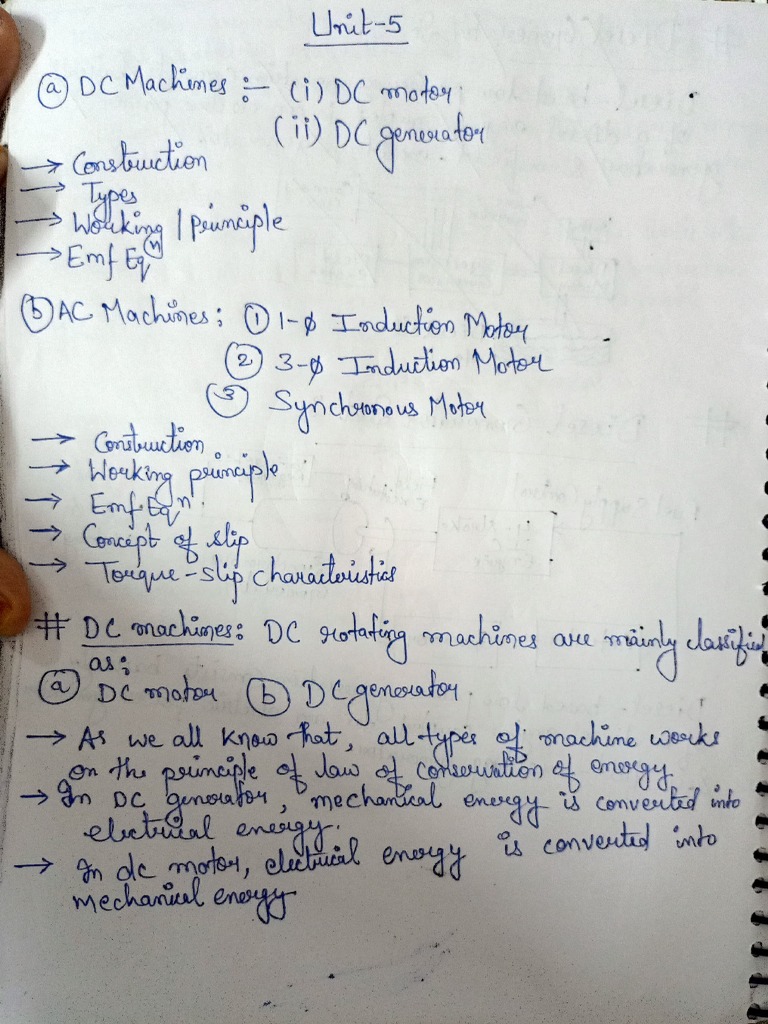 Unit-5
ⓐ DC Machines :- (i) DC motor
(ii) DC generator
→ Construction
→ Types
→ Working / Principle
→ Emf Eqⁿ
ⓑ AC Machines: ① 1-φ Induction Motor
② 3-φ Induction Motor
③ Synchronous Motor
→ Construction
→ Working principle
→ Emf Eqⁿ
→ Concept of slip
→ Torque-slip characteristics
# DC machines: DC rotating machines are mainly classified
as:
ⓐ DC motor ⓑ DC generator
→ As we all know that, all types of machine works
on the principle of law of conservation of energy
→ In DC generator, mechanical energy is converted into
electrical energy.
→ In dc motor, electrical energy is converted into
mechanical energy